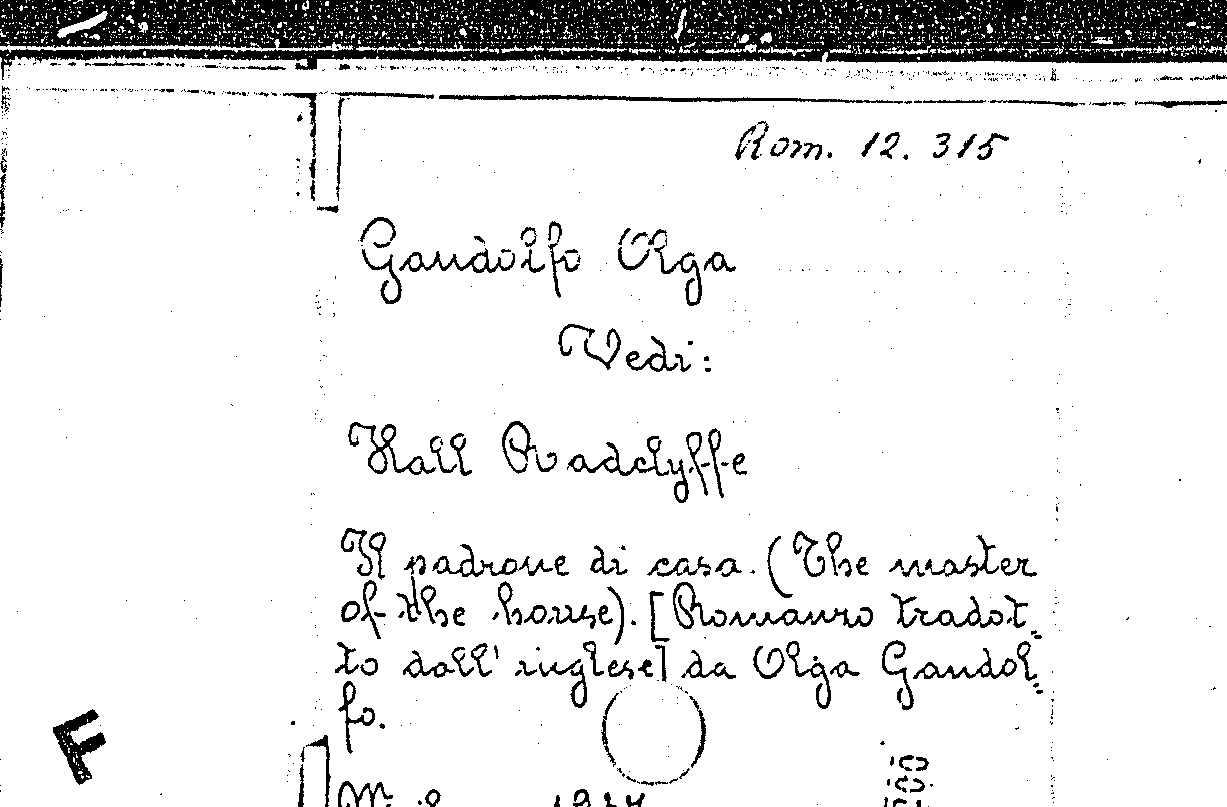 Rom. 12. 315
Gandolfo Olga
Vedi:
Hall Radclyffe
Il padrone di casa. (The master
of the house). [Romanzo tradot=
to dall' inglese] da Olga Gandol=
fo.
F